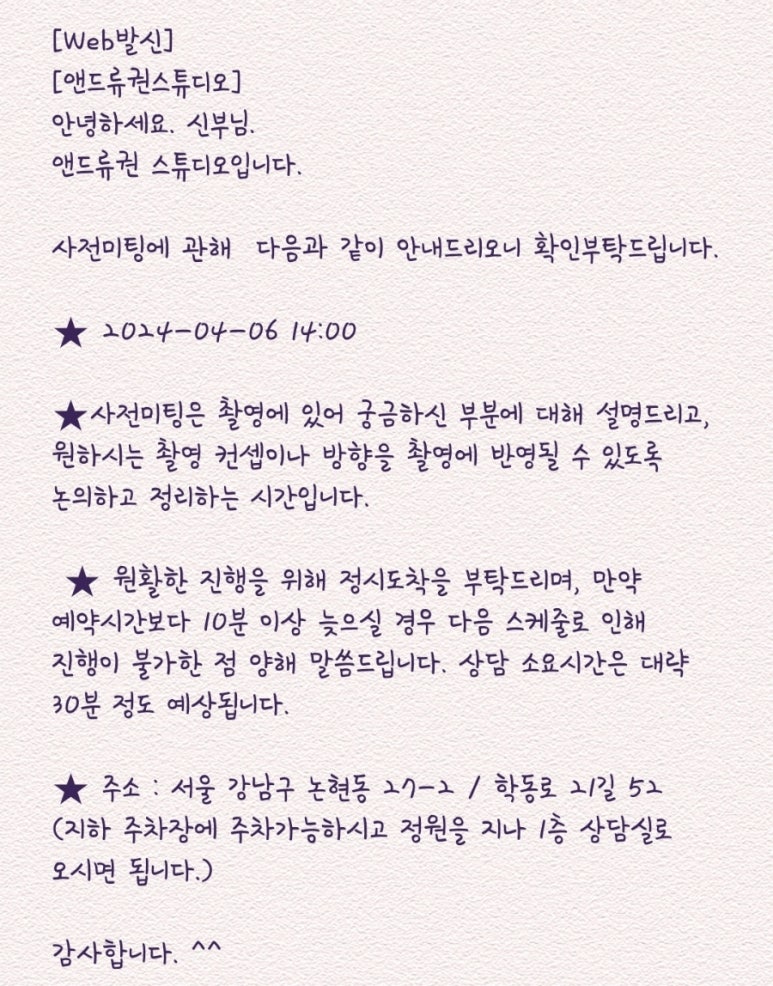 [Web발신]
[앤드류권스튜디오]
안녕하세요. 신부님.
앤드류권 스튜디오입니다.
사전미팅에 관해 다음과 같이 안내드리오니 확인부탁드립니다.
★ 2024-04-06 14:00
★사전미팅은 촬영에 있어 궁금하신 부분에 대해 설명드리고,
원하시는 촬영 컨셉이나 방향을 촬영에 반영될 수 있도록
논의하고 정리하는 시간입니다.
★ 원활한 진행을 위해 정시도착을 부탁드리며, 만약
예약시간보다 10분 이상 늦으실 경우 다음 스케줄로 인해
진행이 불가한 점 양해 말씀드립니다. 상담 소요시간은 대략
30분 정도 예상됩니다.
★ 주소 : 서울 강남구 논현동 27-2 / 학동로 21길 52
(지하 주차장에 주차가능하시고 정원을 지나 1층 상담실로
오시면 됩니다.)
감사합니다. ^^